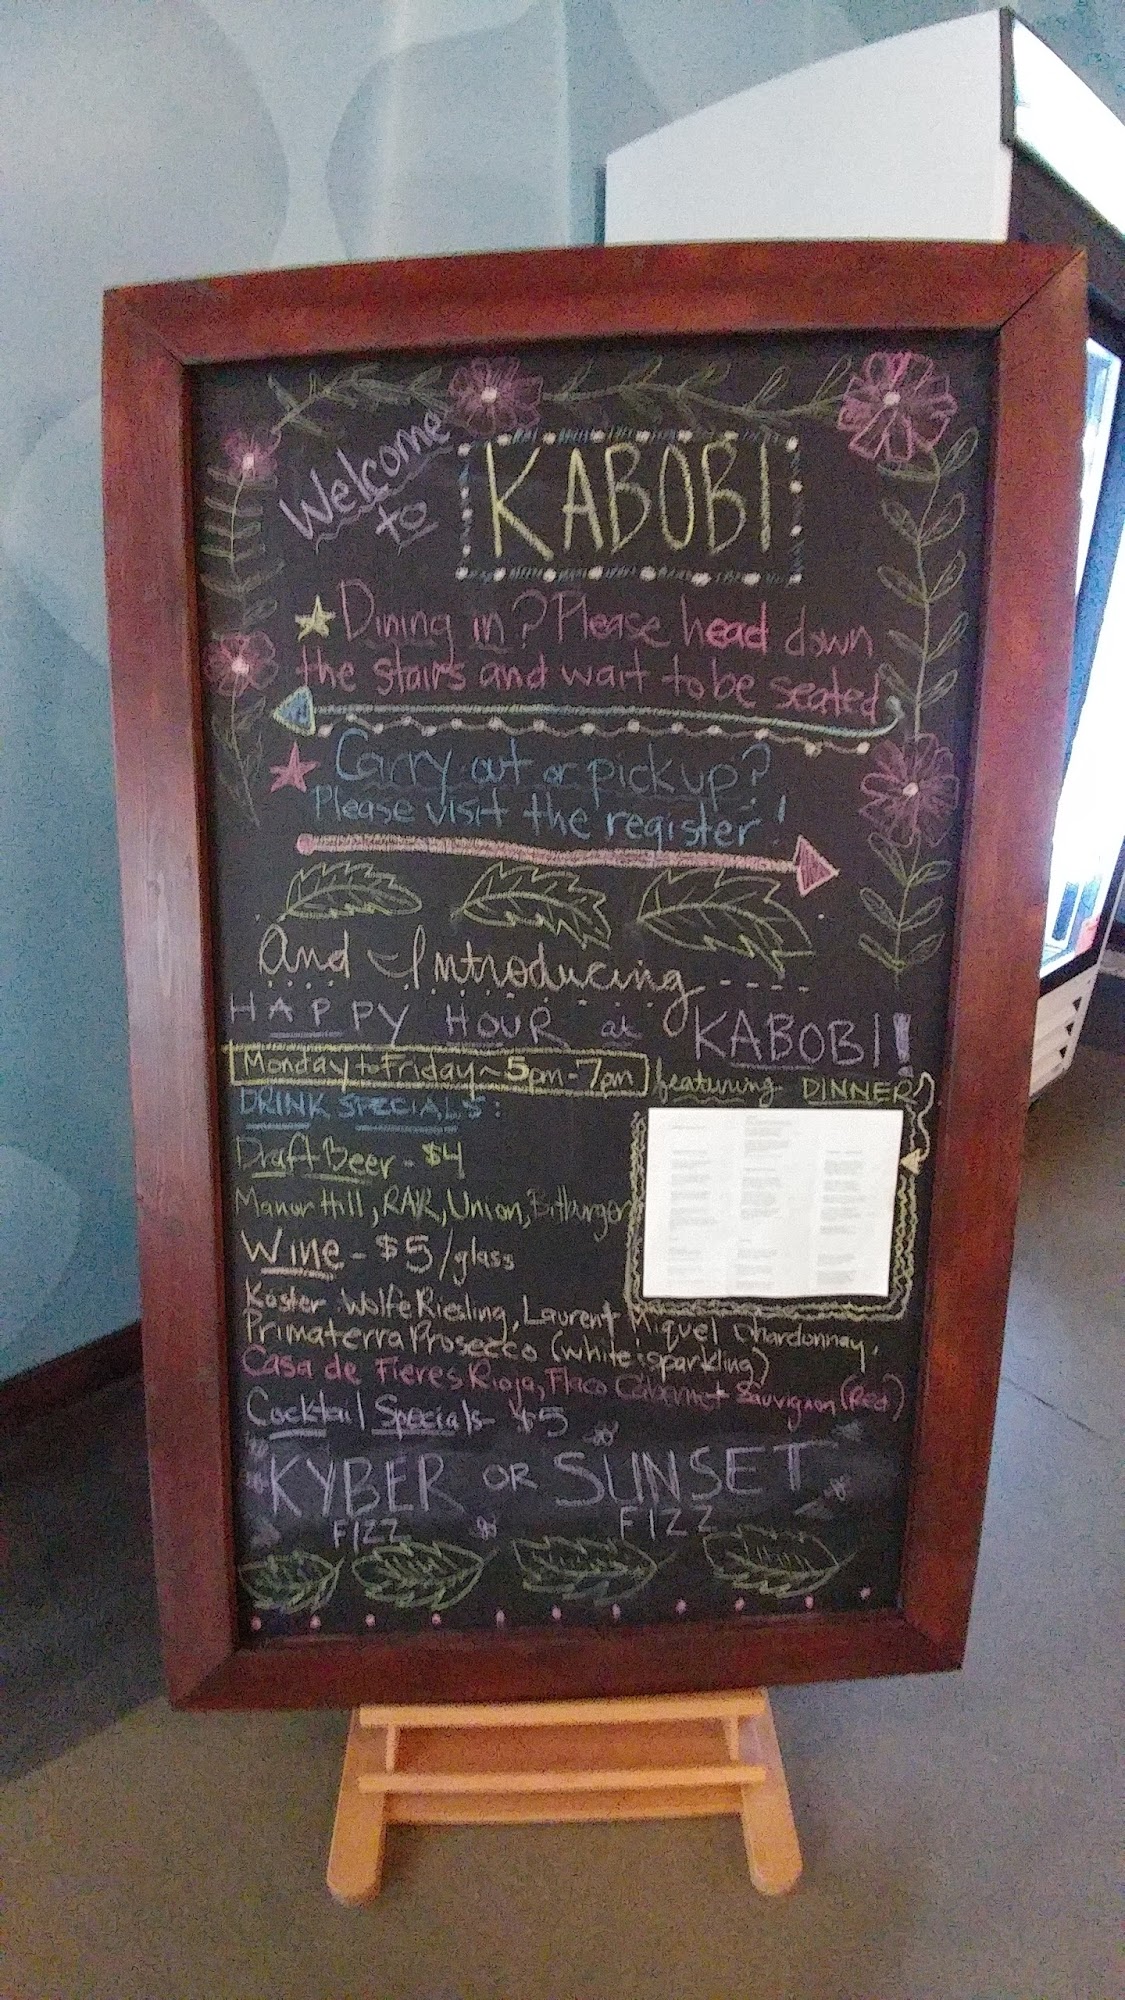 Welcome
to
KABOBI
Dining in? Please head down
the stairs and wait to be seated
Carry out or pick up?
Please visit the register!
And Introducing
HAPPY HOUR at KABOBI!
Monday to Friday ~ 5pm - 7pm featuring DINNER
DRINK SPECIALS:
Draft Beer - $4
Manor Hill, RAR, Union, Bitburger
Wine - $5/glass
Koster Wolfe Riesling, Laurent Miquel Chardonnay,
Primaterra Prosecco (white:sparkling)
Casa de Fieres Rioja, Flaco Cabernet Sauvignon (Red)
Cocktail Specials - $5
KYBER OR SUNSET
FIZZ FIZZ